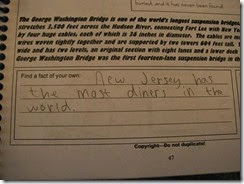 The George Washington Bridge is one of the world's longest suspension bridges.
stretches 3,500 feet across the Hudson River, connecting Fort Lee with New
by four huge cables, each of which is 36 inches in diameter. The cables are
wires woven tightly together and are supported by two towers 604 feet tall.
wide and has two levels, an original section with eight lanes and a lower deck
George Washington Bridge was the first fourteen-lane suspension bridge in
Find a fact of your own: New Jersey has
the most diners in the
world.
Copyright—Do not duplicate!
47